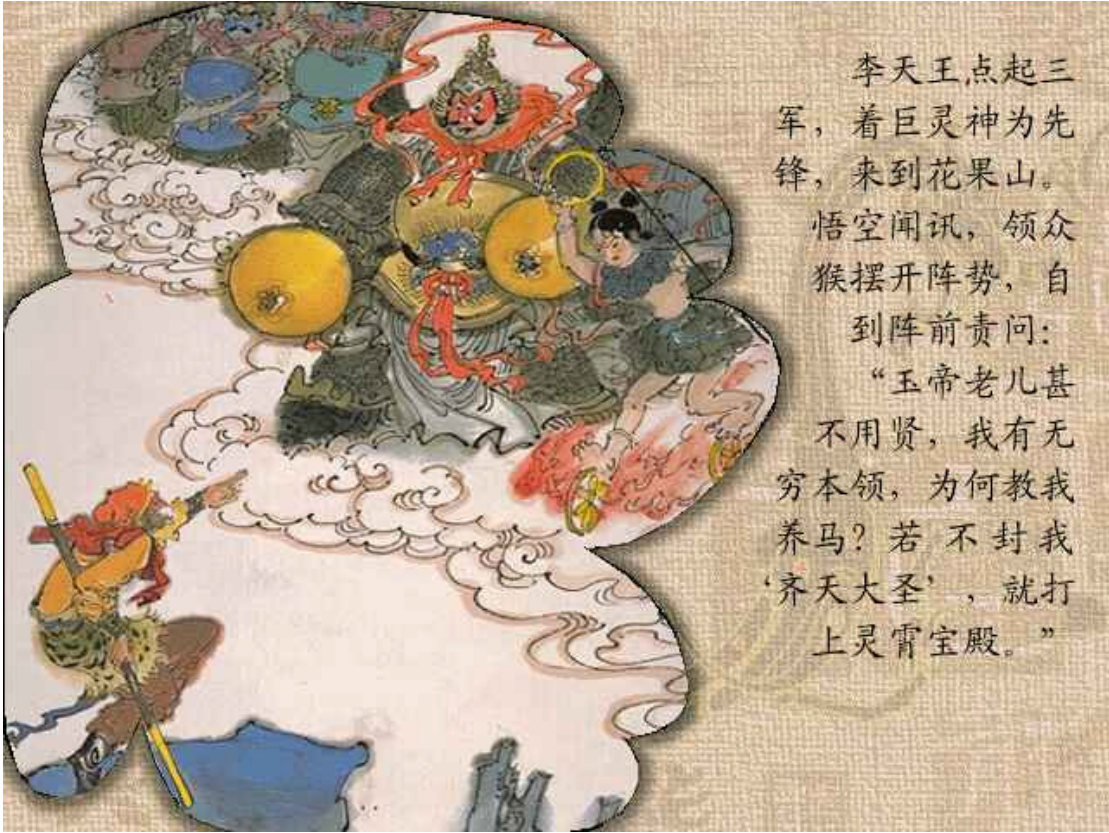 李天王点起三
军，着巨灵神为先
锋，来到花果山。
悟空闻讯，领众
猴摆开阵势，自
到阵前责问：
“玉帝老儿甚
不用贤，我有无
穷本领，为何教我
养马？若 不 封 我
‘齐天大圣’，就打
上灵霄宝殿。”